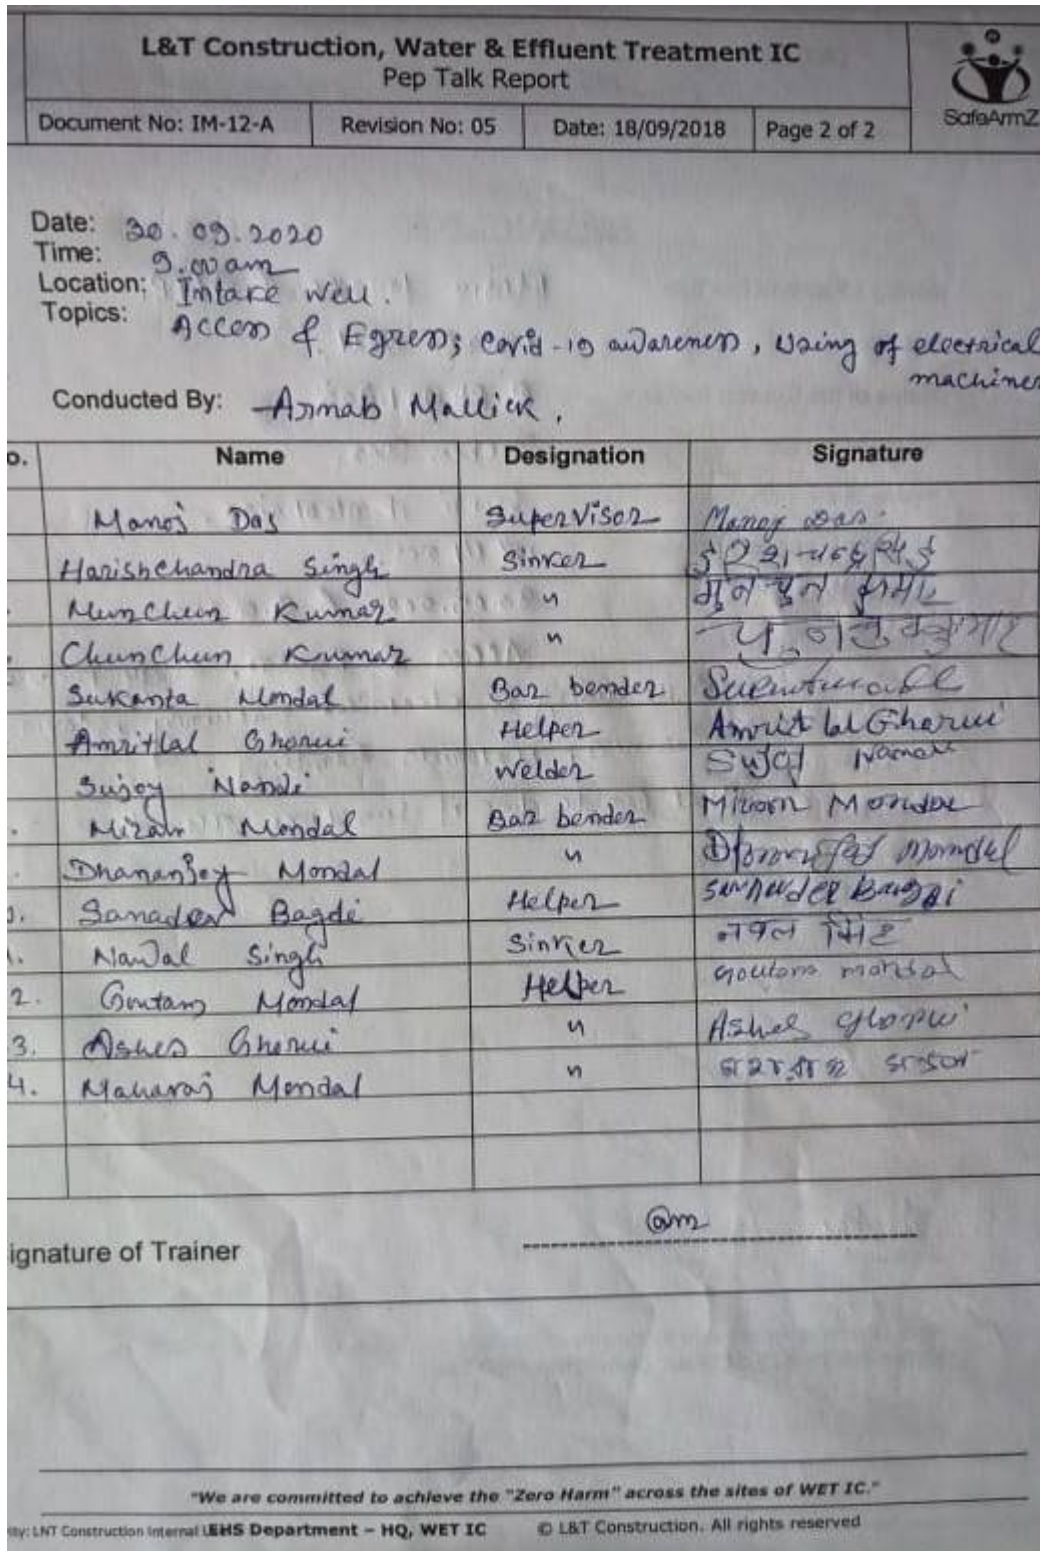 L&T Construction, Water & Effluent Treatment IC
Pep Talk Report
SafeArmZ
Document No: IM-12-A Revision No: 05 Date: 18/09/2018 Page 2 of 2
Date: 30.09.2020
Time: 9.00am
Location: Intake well.
Topics: Access & Egress; Covid-19 awareness, Using of electrical
machines
Conducted By: Arnab Mallick,
o. Name Designation Signature
Manoj Das Supervisor Manoj Das.
Harishchandra Singh Sinker
Munchun Kumar " मुनचुन कुमार
Chunchun Kumar "
Sukanta Mondal Bar bender
Amritlal Ghorui Helper Amrit lal Gharui
Sujoy Nandi Welder
Miran Mondal Bar bender Miron Mondal
Dhananjoy Mondal " Mondal
0. Sanadev Bagdi Helper
1. Nawal Singh Sinker नवल सिंह
2. Goutam Mondal Helper Goutam mondal
3. Ashes Ghorui " Ashes Ghorui
4. Maharaj Mondal "
ignature of Trainer
"We are committed to achieve the "Zero Harm" across the sites of WET IC."
ity: LNT Construction Internal U EHS Department – HQ, WET IC © L&T Construction. All rights reserved